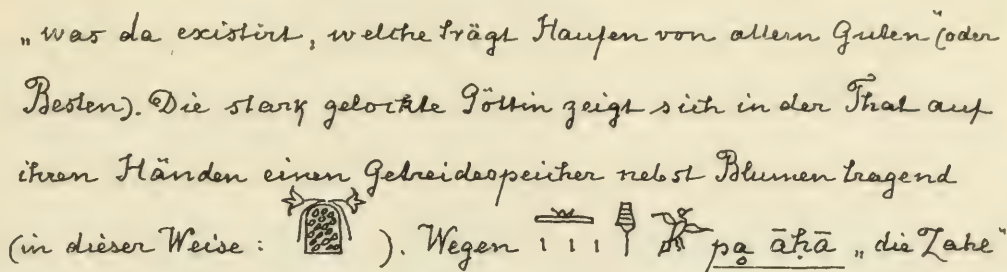 „was da existirt, welche trägt Haufen von allem Guten (oder
Besten)." Die stark gelockte Göttin zeigt sich in der That auf
ihren Händen einen Getreidespeicher nebst Blumen tragend
(in dieser Weise: ). Wegen pa̤ āḥā „die Zahe"